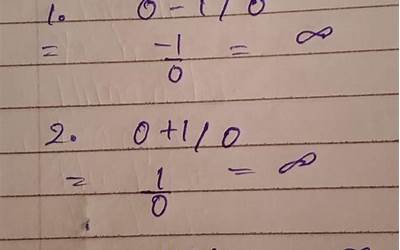 1. 0 - 1 / 0
= -1/0 = ∞
2. 0 + 1 / 0
= 1/0 = ∞